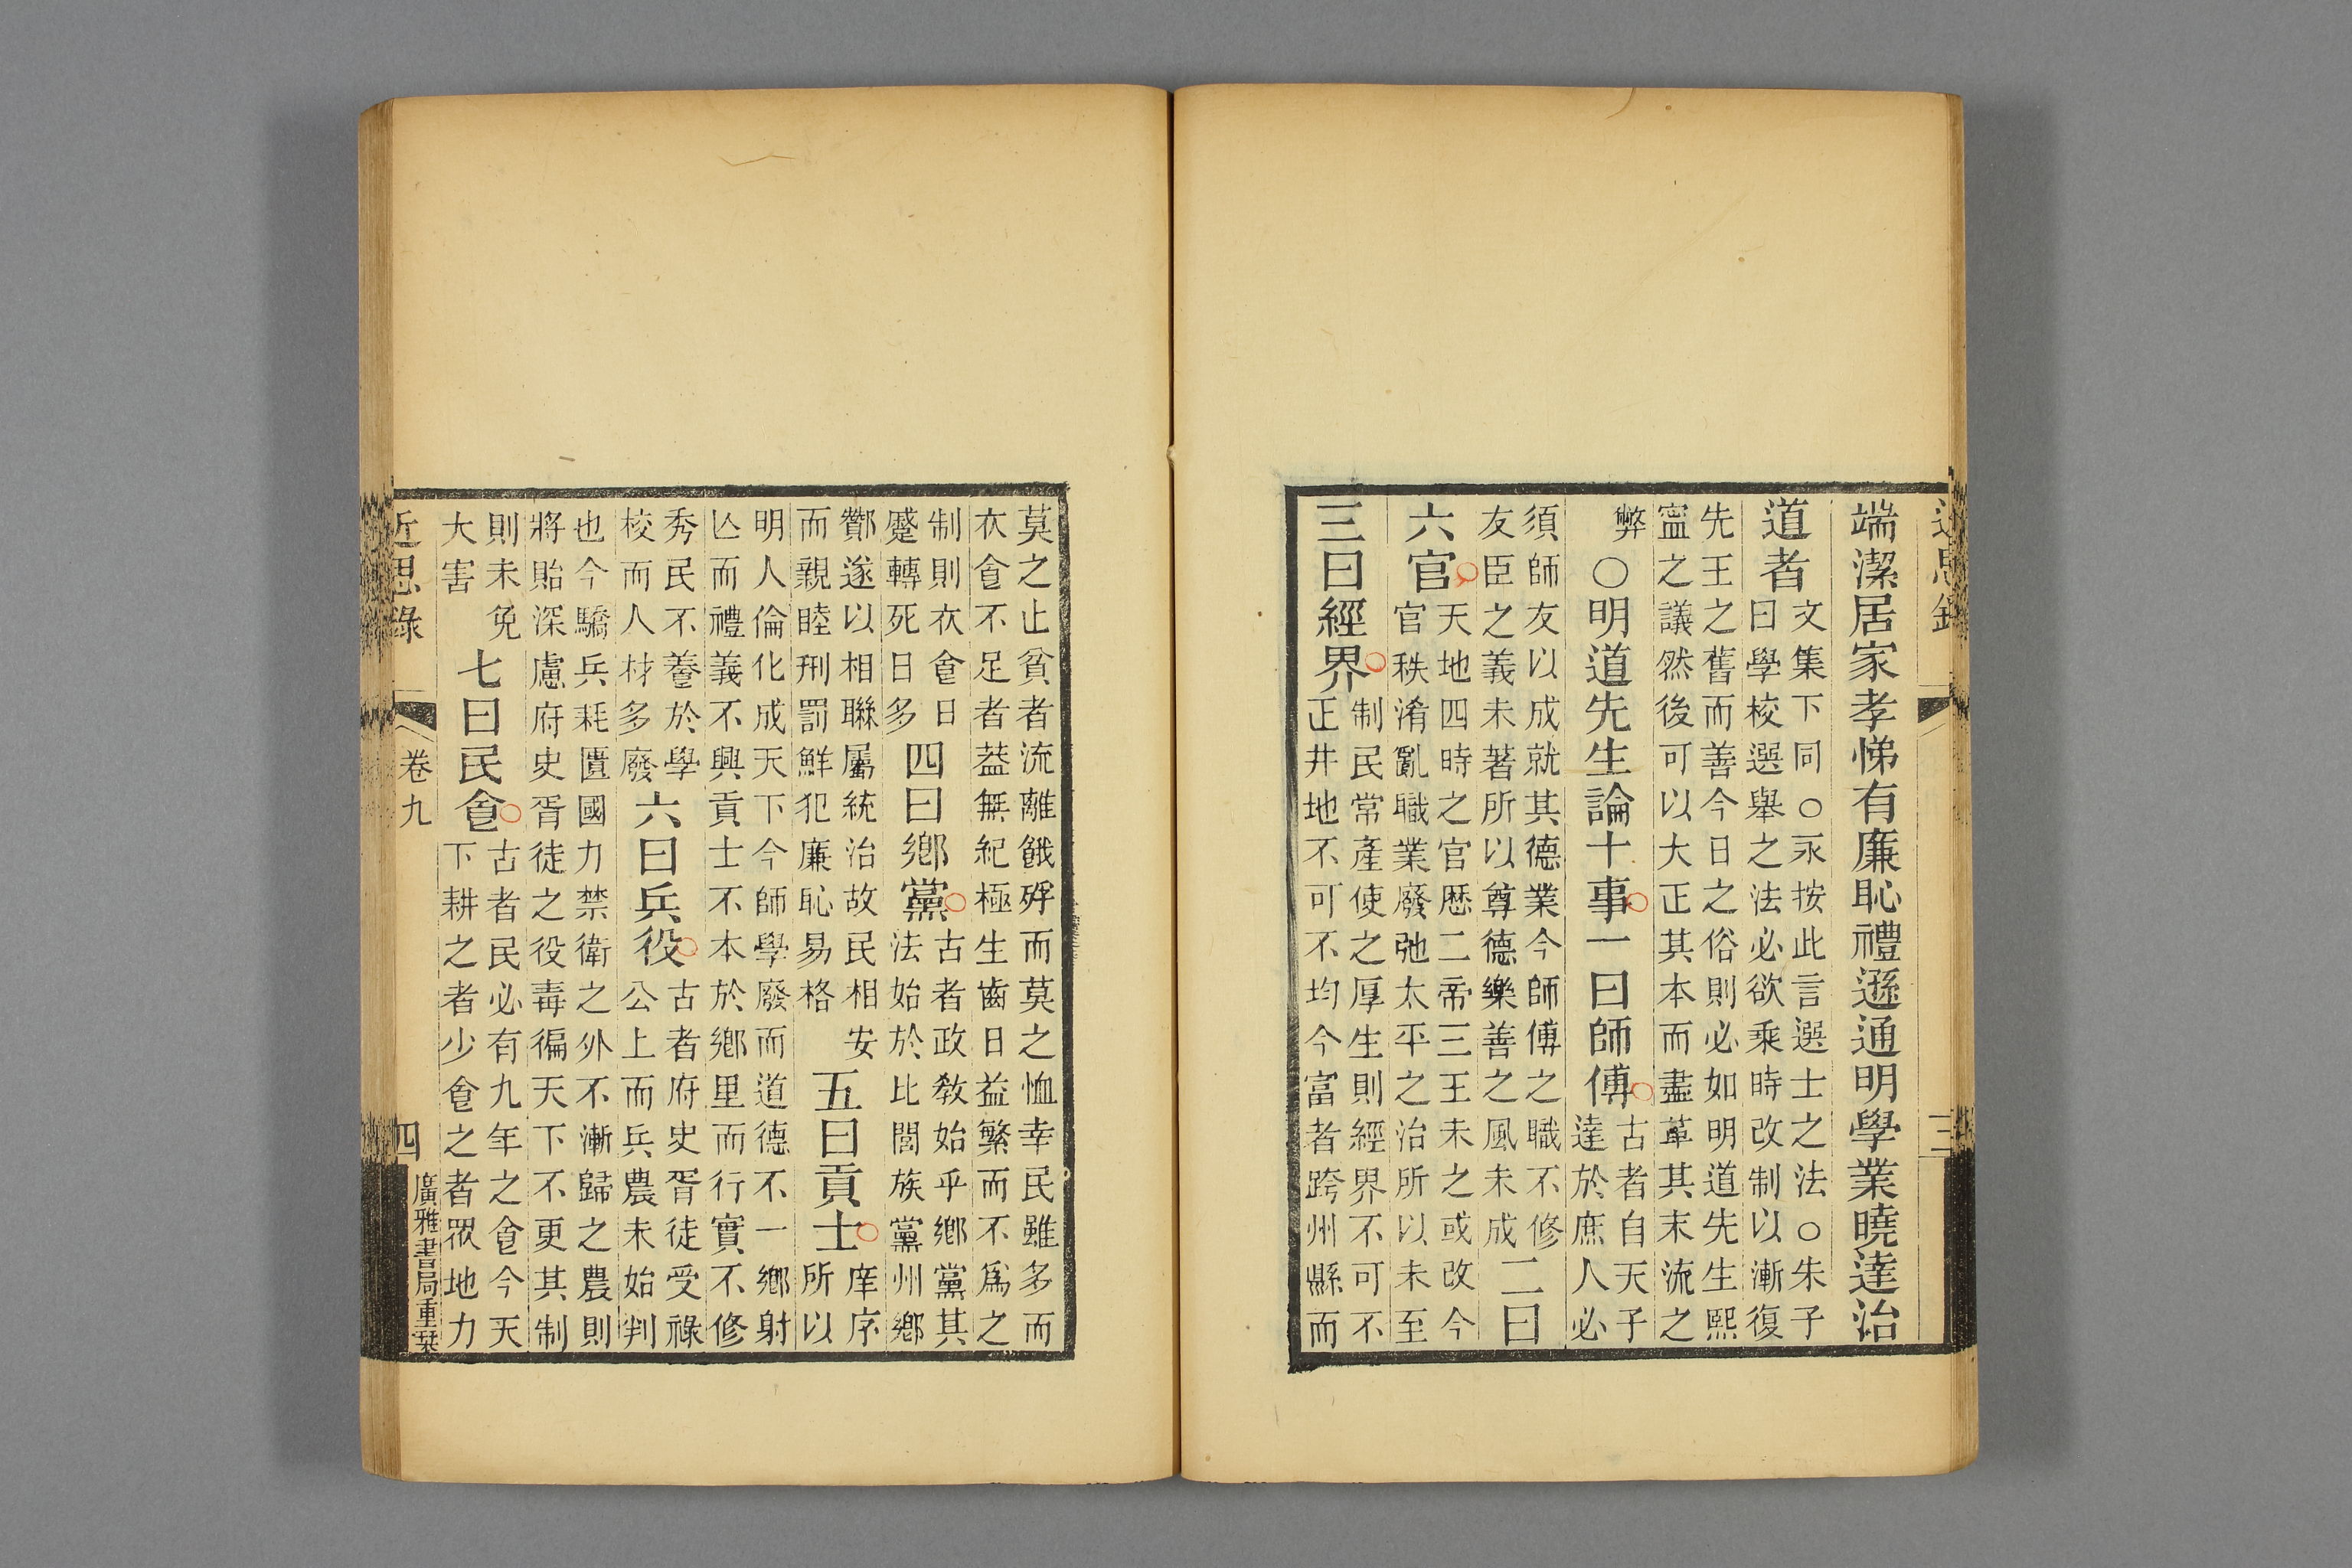 端潔居家孝悌有廉恥禮遜通明學業曉達治
道者
文集下同○永按此言選士之法○朱子
曰學校選舉之法必欲乘時改制以漸復
先王之舊而善今日之俗則必如明道先生熙
寍之議然後可以大正其本而盡革其末流之
弊
○明道先生論十事一曰師傅
古者自天子
達於庶人必
須師友以成就其德業今師傅之職不修
友臣之義未著所以尊德樂善之風未成
二曰
六官
天地四時之官歷二帝三王未之或改今
官秩淆亂職業廢弛太平之治所以未至
三曰經界
制民常產使之厚生則經界不可不
正井地不可不均今富者跨州縣而
莫之止貧者流離餓殍而莫之恤幸民雖多而
衣食不足者葢無紀極生齒日益繁而不爲之
制則衣食日
蹙轉死日多
四曰鄉黨
古者政敎始乎鄉黨其
法始於比閭族黨州鄉
酇遂以相聯屬統治故民相安
而親睦刑罰鮮犯廉恥易格
五曰貢士
庠序
所以
明人倫化成天下今師學廢而道德不一鄉射
亾而禮義不興貢士不本於鄉里而行實不修
秀民不養於學
校而人材多廢
六曰兵役
古者府史胥徒受祿
公上而兵農未始判
也今驕兵耗匱國力禁衛之外不漸歸之農則
將貽深慮府史胥徒之役毒徧天下不更其制
則未免
大害
七曰民食
古者民必有九年之食今天
下耕之者少食之者眾地力
近思錄
卷九
四
廣雅書局重栞